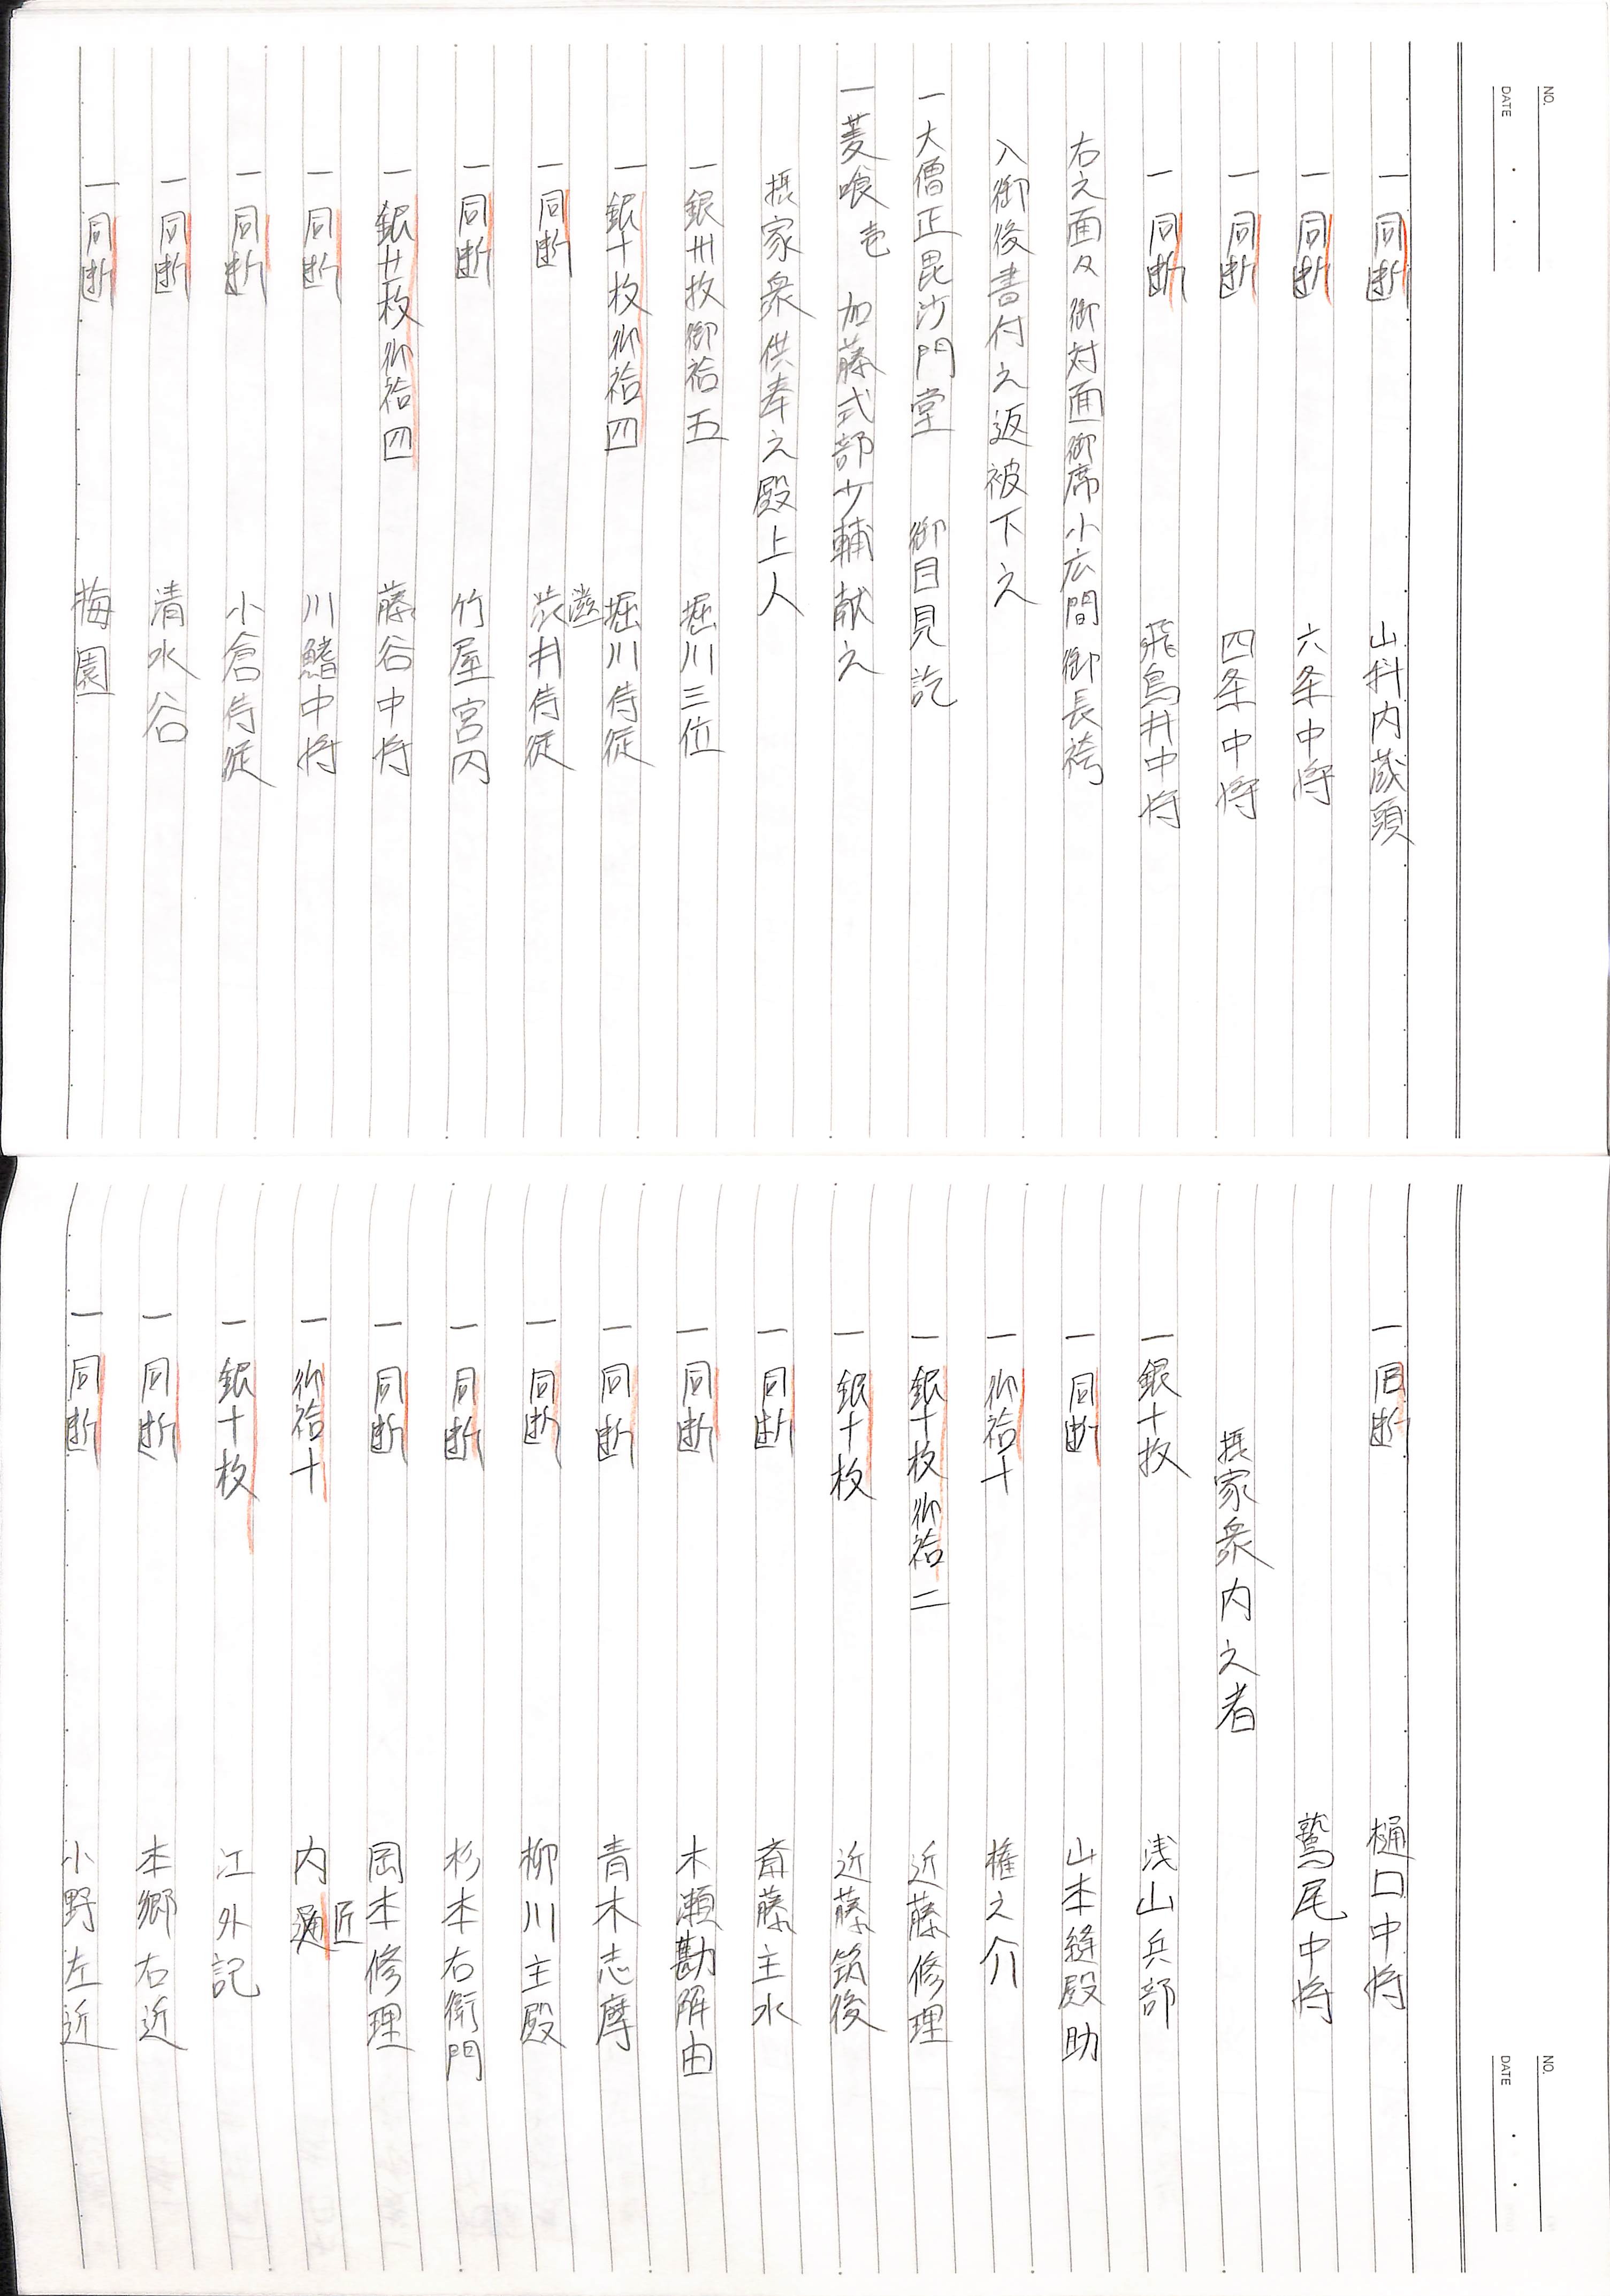 NO.
DATE
一 同断 山科内蔵頭
一 同断 六条中将
一 同断 四条中将
一 同断 飛鳥井中将
右之面々御対面御席小広間御長袴
入御後書付之返被下之
一 大僧正毘沙門堂 御目見訖
一 菱喰 壱 加藤式部少輔献之
摂家衆供奉之殿上人
一 銀卅枚御袷五 堀川三位
一 銀十枚御袷四 堀川侍従
一 同断 渋井侍従
滋
一 同断 竹屋宮内
一 銀廿枚御袷四 藤谷中将
一 同断 川鰭中将
一 同断 小倉侍従
一 同断 清水谷
一 同断 梅園
NO.
DATE
一 同断 樋口中将
鷲尾中将
摂家衆内之者
一 銀十枚 浅山兵部
一 同断 山本縫殿助
一 御袷十 権之介
一 銀十枚御袷二 近藤修理
一 銀十枚 近藤筑後
一 同断 斎藤主水
一 同断 木瀬勘解由
一 同断 青木志摩
一 同断 柳川主殿
一 同断 杉本右衛門
一 同断 岡本修理
一 御袷十 内通
匠
一 銀十枚 江外記
一 同断 本郷右近
一 同断 小野左近